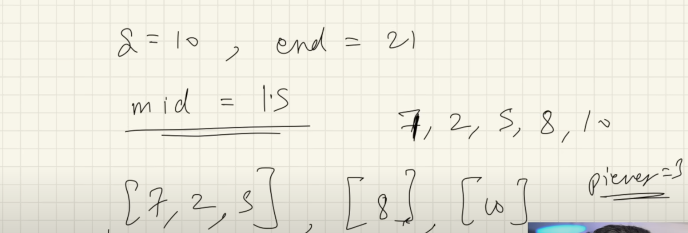 S = 10, end = 21
mid = 15
7, 2, 5, 8, 10
[7, 2, 5], [8], [10]
pieces = 3